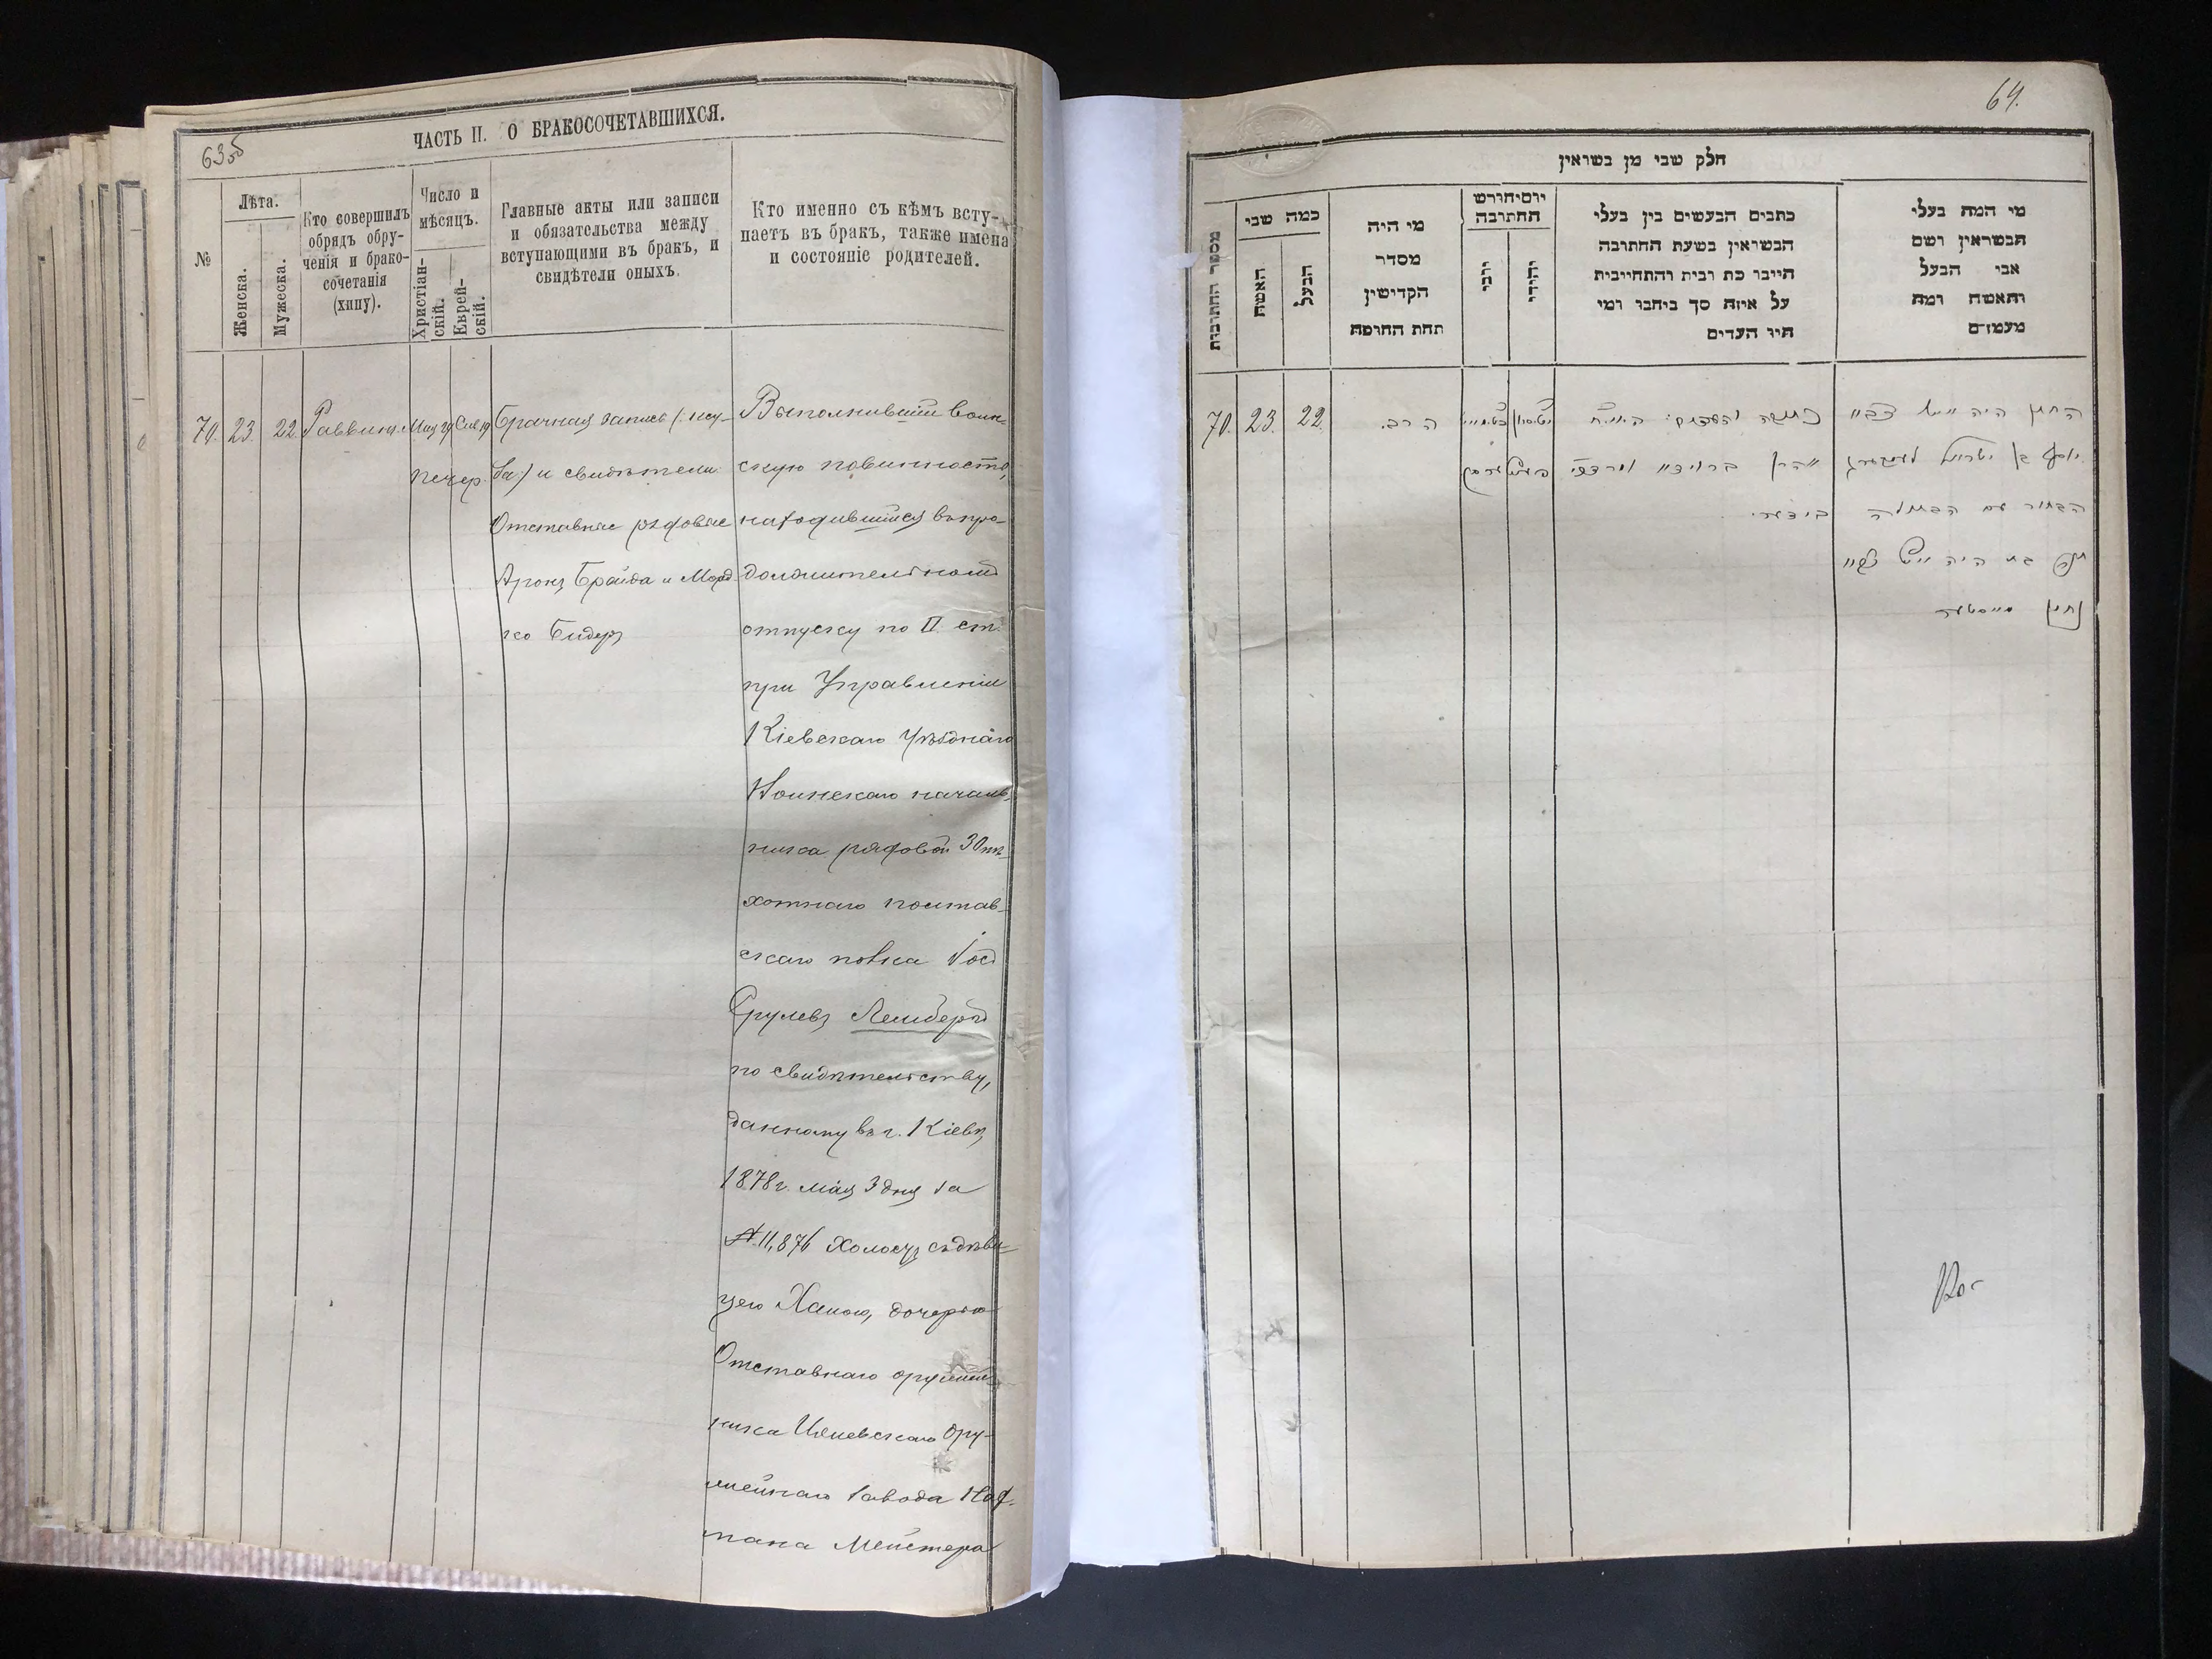 63об
ЧАСТЬ II. О БРАКОСОЧЕТАВШИХСЯ.
№
Лѣта.
Женска.
Мужеска.
Кто совершилъ
обрядъ обру-
ченія и брако-
сочетанія
(хипу).
Число и
мѣсяцъ.
Христіан-
скій.
Еврей-
скій.
Главные акты или записи
и обязательства между
вступающими въ бракъ, и
свидѣтели оныхъ.
Кто именно съ кѣмъ всту-
паетъ въ бракъ, также имена
и состояніе родителей.
70. 23. 22. Раввинъ.
вечер.
Брачная запись
и свидѣтели:
Отставные рядовые
Аронъ Брайда и Морд
ко Бидеръ
Выполнившій воин-
скую повинность,
находившійся въ про-
должительномъ
отпуску по II ст.
при Управленіи
Кіевскаго Уѣзднаго
Воинскаго началь-
ника рядовой 30 пѣ-
хотнаго Полтав-
скаго полка Іос
Срулевъ Лембергъ
по свидѣтельству,
данному въ г. Кіевѣ
1878 г. мая 3 дня за
№ 11,876 холостъ съ дѣви-
цею Ханою, дочерью
Отставнаго оружей-
ника Ижевскаго Ору-
жейнаго завода Нах-
мана Мейстера
64.
חלק שני מן נשואין
מספר החתונות
כמה שני
האשה
הבעל
מי היה
מסדר
הקדישין
תחת החופה
יום וחודש
החתונה
יוני
יהודי
כתבים הנעשים בין בעלי
הנשואין בשעת החתונה
היינו כת רבית והתחייבית
על איזה סך ביחבו ומי
היו העדים
מי המה בעלי
הנשואין ושם
אבי הבעל
והאשה ומה
מעמדם
70. 23. 22. הרב.
החתן היה
יוסף בן ישראל לעמבערג
הבחור עם הבתולה
חנה בת היה
נחמן מייסטער
אהרן ברוידא
בידער.